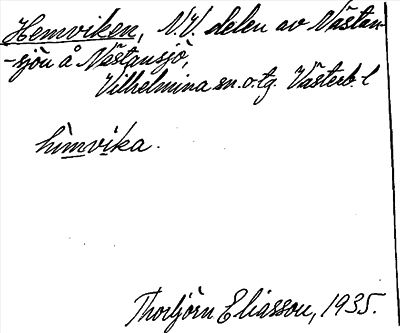 Hemviken, N.V. delen av Nästan-
-sjön å Nästansjö,
Vilhelmina sn. o. tg. Västerb. l
hìmvika.
Thorbjörn Eliasson, 1935.